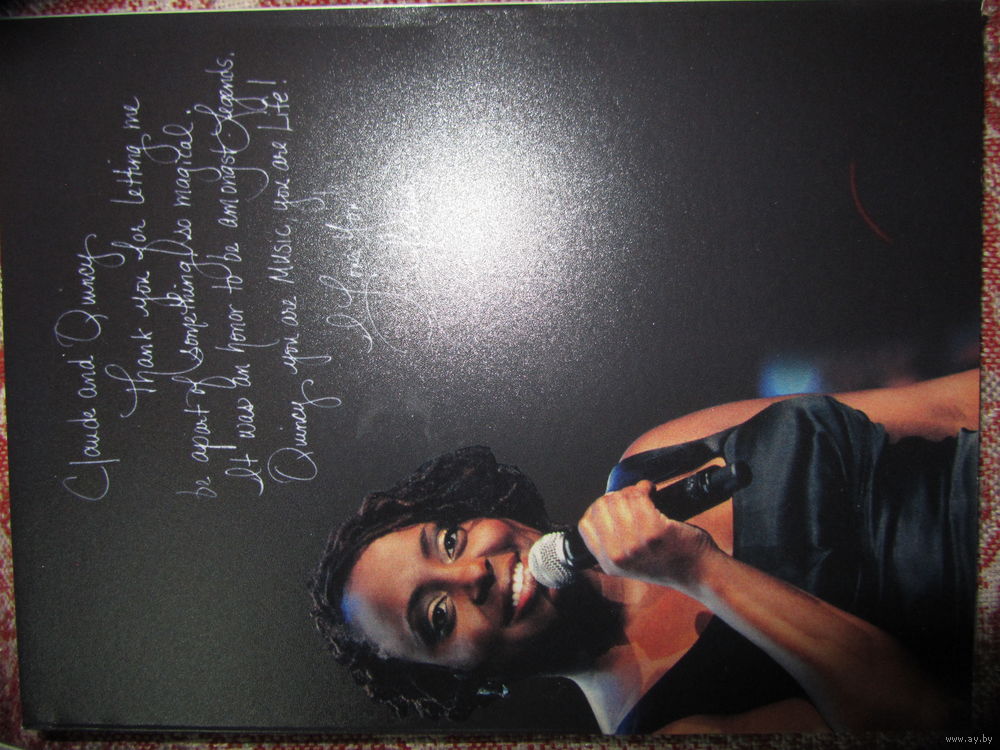 Claude and Quincy
Thank you for letting me
be apart of something so magical.
It was an honor to be amongst Legends.
Quincy you are Music, you are Life!
I Love You
www.ay.by